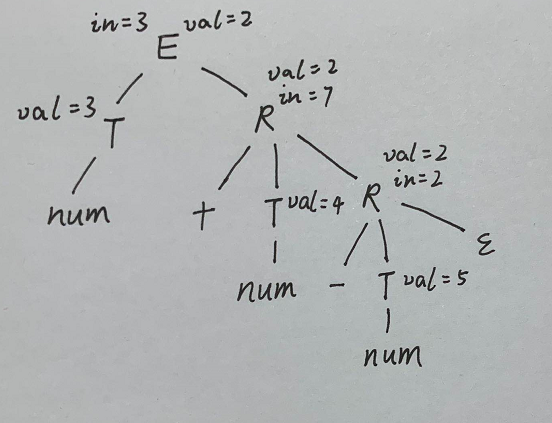 in=3 E val=2
val=2
val=3 T R in=7
val=2
num + T val=4 R in=2
ε
num - T val=5
num